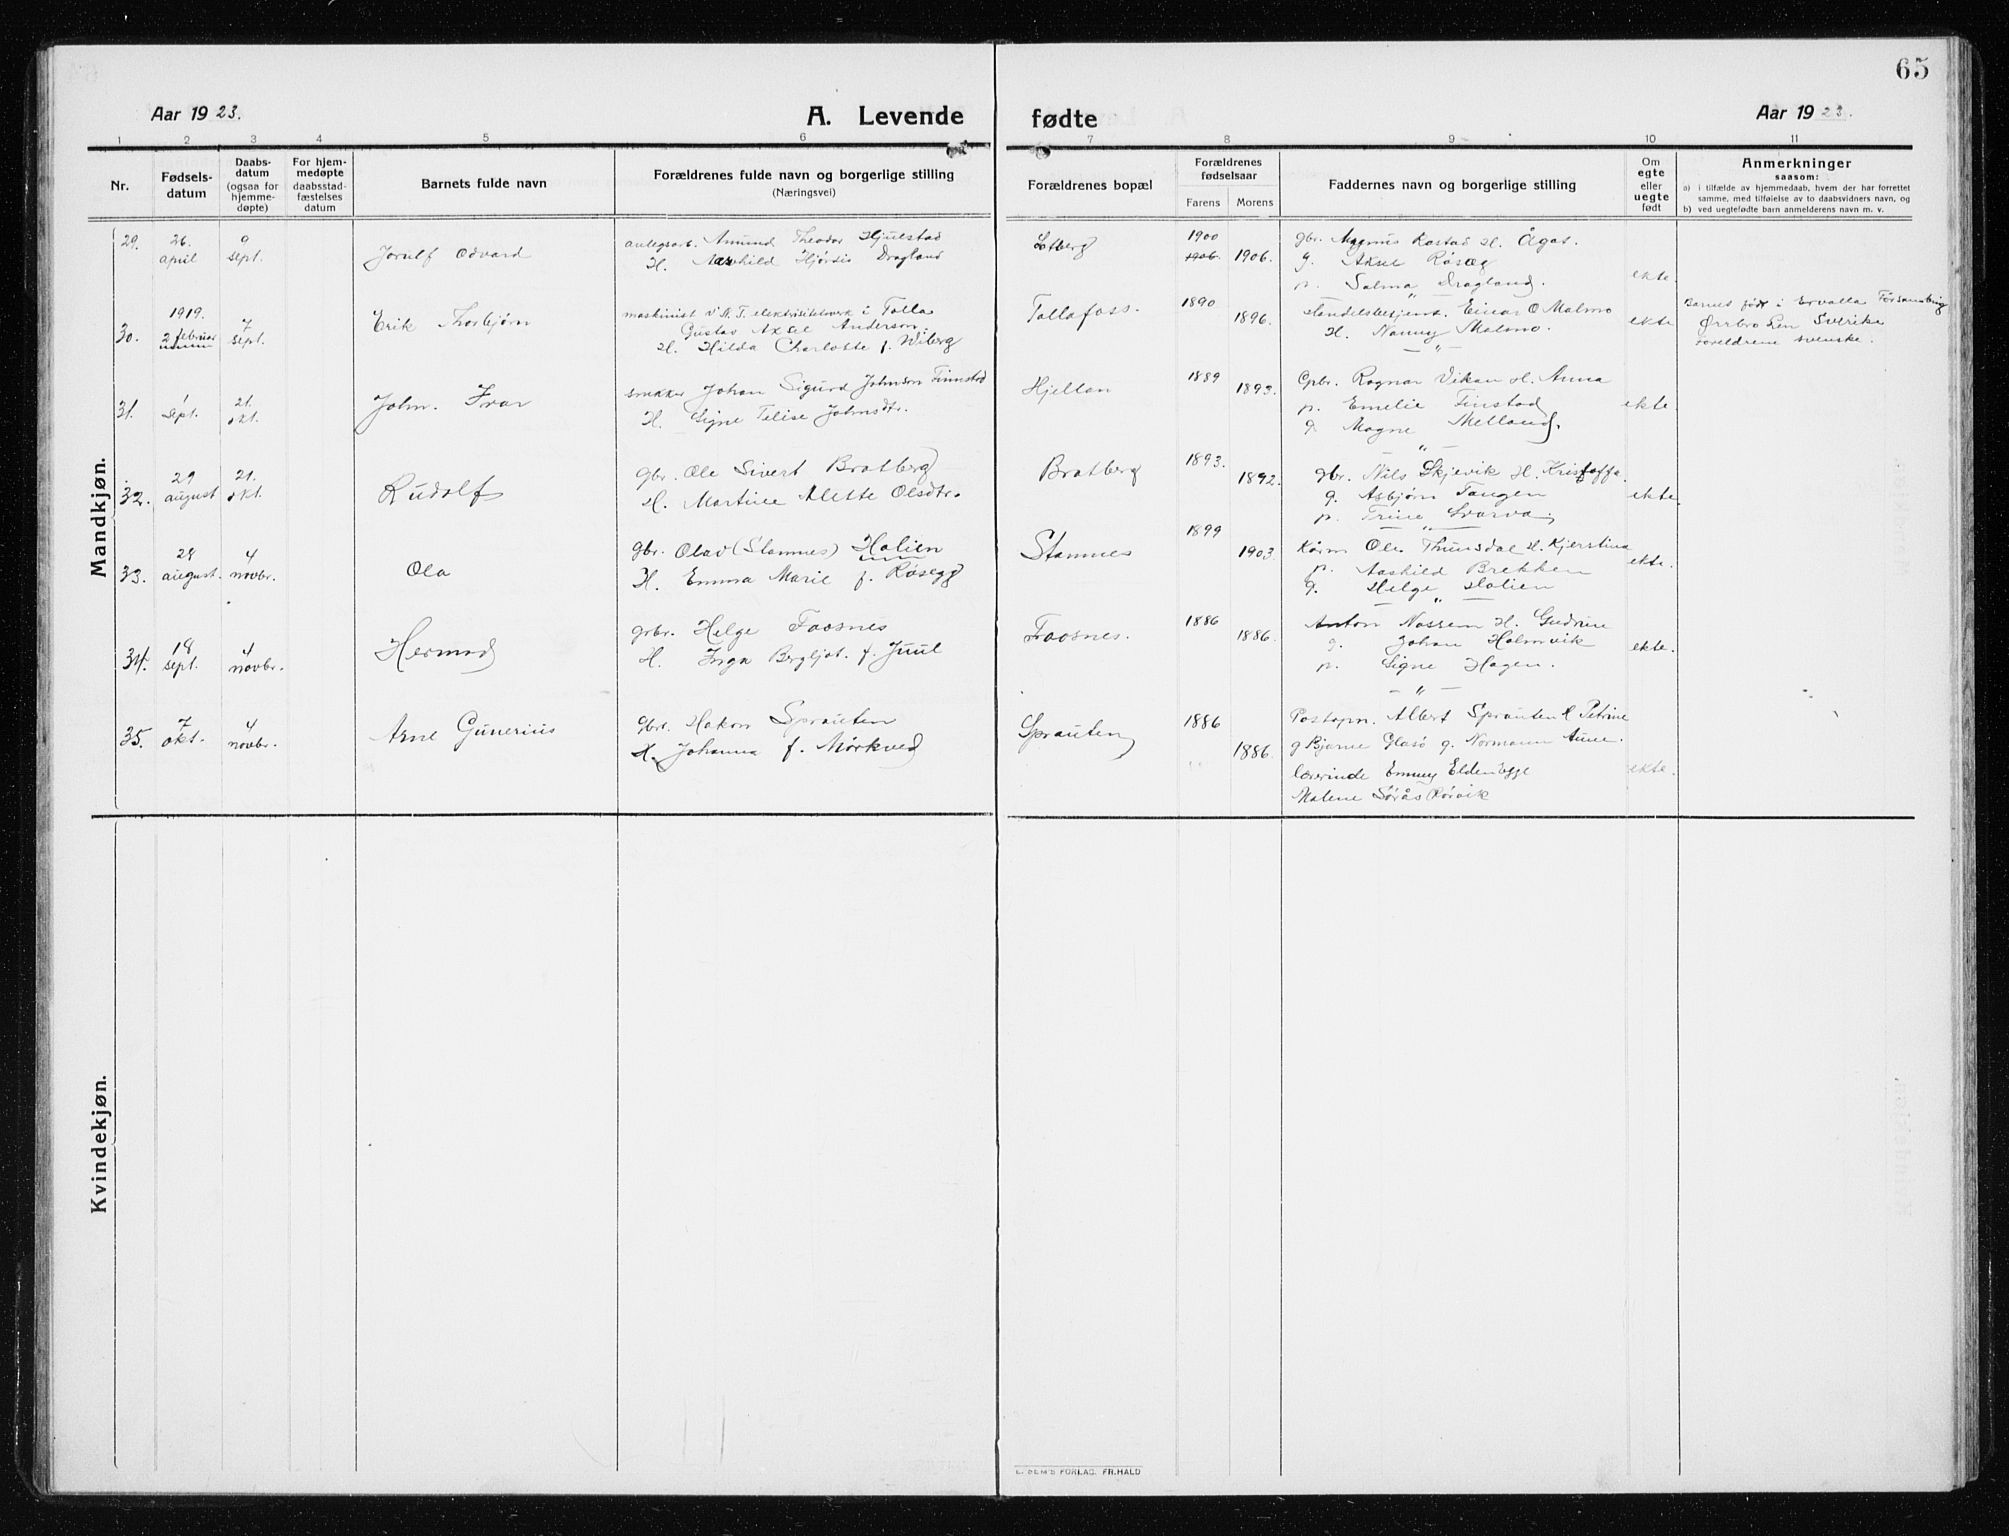 65
Aar 1923.
A. Levende
fødte
Aar 1923.
1 2 3 4 5 6 7 8 9 10 11
Nr.
Fødsels-
datum
Daabs-
datum
(ogsaa for
hjemme-
døpte)
For hjem-
medøpte
daabsstad-
fæstelses
datum
Barnets fulde navn
Forældrenes fulde navn og borgerlige stilling
(Næringsvei)
Forældrenes bopæl
Forældrenes
fødselsaar
Farens Morens
Faddernes navn og borgerlige stilling
Om
egte
eller
uegte
født
Anmerkninger
saasom:
a) i tilfælde av hjemmedaab, hvem der har forrettet
samme, med tilføielse av to daabsvidners navn, og
b) ved uegtefødte barn anmelderens navn m. v.
Mandkjøn.
29. 26. april 9 sept. Jorulf Odvard
anlegsarb. Amund Theodor Hjulstad
H. Hjørdis Dragland
1900 1906 1906.
gbr. Magnus Rostad H. Ågot.
g. Aksel Røseg
p. Salma Dragland.
ekte
30. 1919. 2 februar 7 sept. Erik Thorbjørn
maskinist v. N. T. elektrisitetsverk i Folla
Gustav Axel Anderson.
H. Hilda Charlotte f. Wiberg
Follafoss. 1890 1896.
Einar O Malmo
H. Nanny Malmo.
ekte
Barnet født i Ervalla Församling
Ørebro Len Sverike
foreldrene svenske.
31. 1 sept. 21. okt. John. Ivar
snekker Johan Sigurd Johnson Finnstad
H. Signe Telise Johnsdtr.
Hjellan 1889 1893.
Gpbr. Ragnar Vikan H. Anna
p. Emelie Finstad
g. Magne Melland.
ekte.
32. 29 august 21. okt. Rudolf
gbr. Ole Sivert Bratberg
H. Martine Alette Olsdtr.
Bratberg 1893. 1892.
gbr. Nils Skjevik H. Kristoffa.
g. Asbjørn Tangen
p. Trine Svarva.
ekte
33. 28 august. 4 novbr. Ola
gbr. Olav (Stamnes) Holien
H. Emma Marie f. Røsegg
Stamnes 1899 1903
Ole Thunsdal H. Kjerstina
p. Aashild Brekken
g. Helge Holien
ekte.
34. 18 sept. 4 novbr. Hermod
grbr. Helge Faosnes
H. Inga Bergljot. f. Juul
Faosnes. 1886 1886.
Anton Nossem H. Gudrine
g. Johan Holmvik
p. Signe Hagen.
ekte.
35. 7 okt. 4 novbr. Arne Gunerius
gbr. Hakon Sprauten
H. Johanna f. Mørkved
Sprauten 1886 1886.
Postopn. Albert Sprauten H Petrine
g Bjarne Glasø g. Normann Aune.
lærerinde Emmy Elden Egge
Malene Sørås Rørvik
ekte.
Kvindekjøn.
E. SEM'S FORLAG. FR.HALD